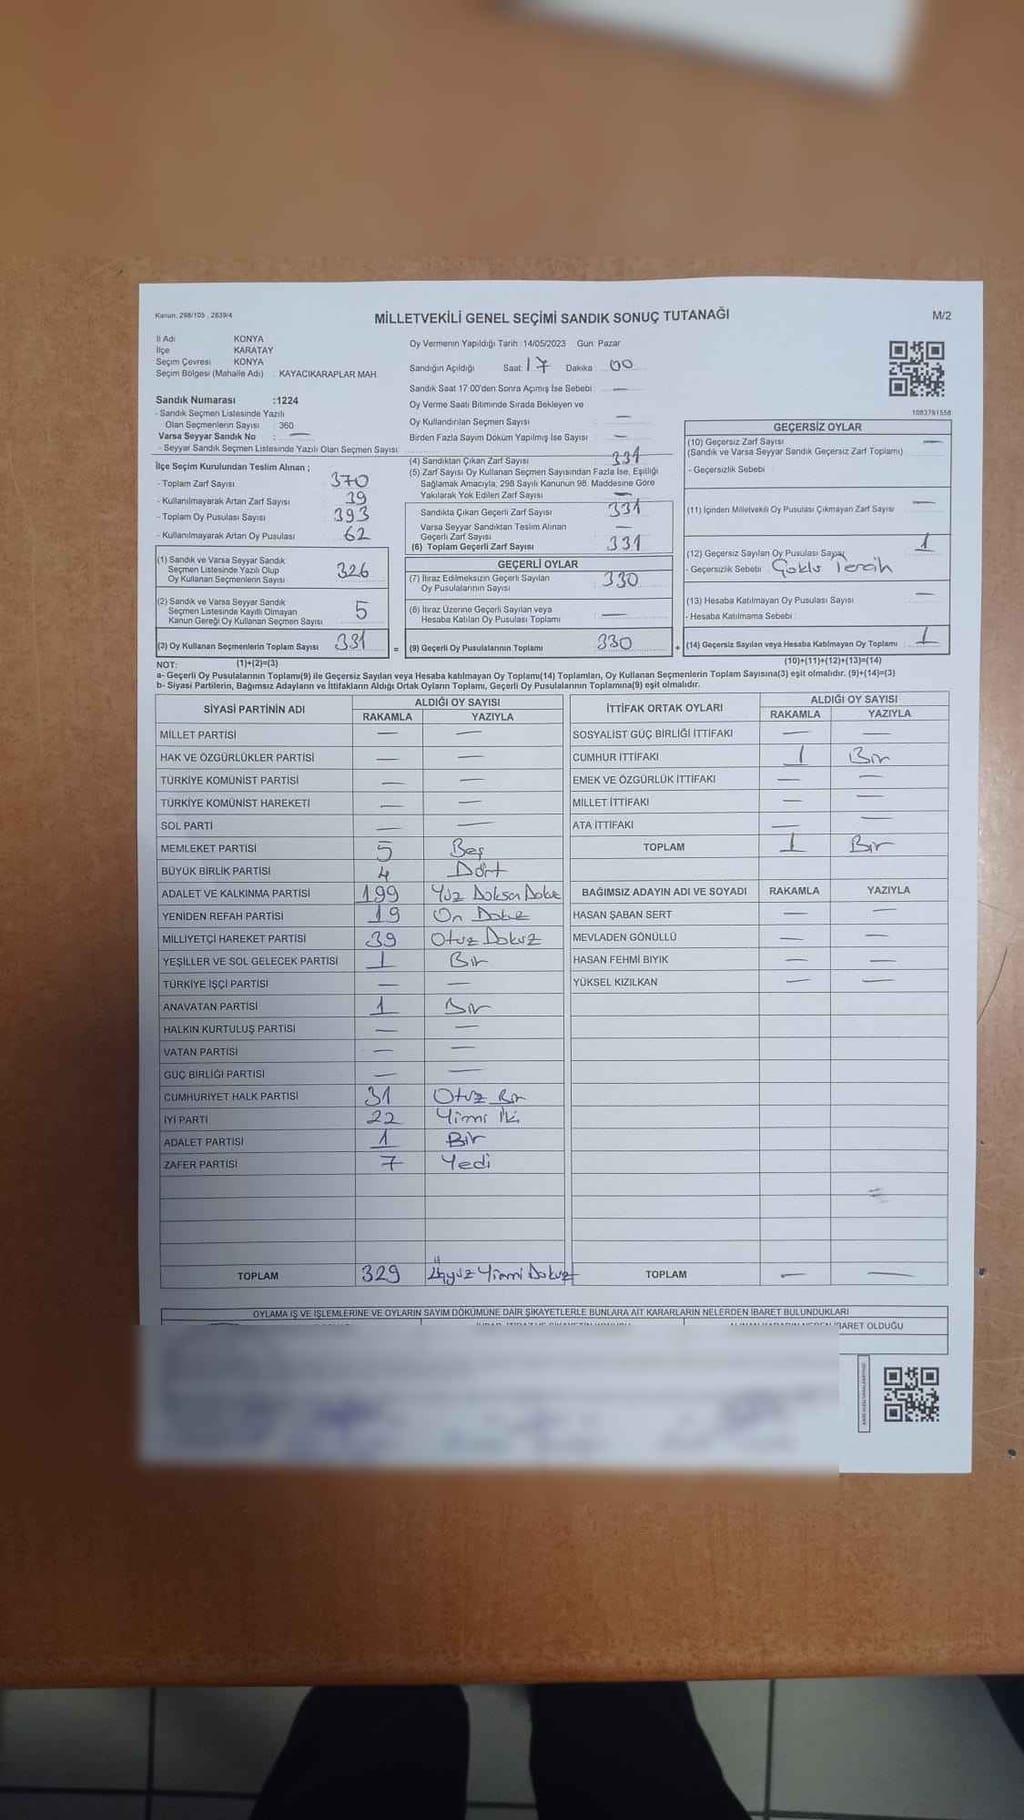 Kanun, 298/105 , 2839/4
MİLLETVEKİLİ GENEL SEÇİMİ SANDIK SONUÇ TUTANAĞI
M/2
İl Adı KONYA
İlçe KARATAY
Seçim Çevresi KONYA
Seçim Bölgesi (Mahalle Adı) : KAYACIKARAPLAR MAH.
Sandık Numarası :1224
- Sandık Seçmen Listesinde Yazılı
Olan Seçmenlerin Sayısı : 360
Varsa Seyyar Sandık No : —
- Seyyar Sandık Seçmen Listesinde Yazılı Olan Seçmen Sayısı
Oy Vermenin Yapıldığı Tarih :14/05/2023 Gün: Pazar
Sandığın Açıldığı Saat: 17 Dakika 00
Sandık Saat 17:00'den Sonra Açımış İse Sebebi : —
Oy Verme Saati Bitiminde Sırada Bekleyen ve
Oy Kullandırılan Seçmen Sayısı —
Birden Fazla Sayım Döküm Yapılmış İse Sayısı —
1083781558
İlçe Seçim Kurulundan Teslim Alınan ;
- Toplam Zarf Sayısı 370
- Kullanılmayarak Artan Zarf Sayısı 39
- Toplam Oy Pusulası Sayısı 393
- Kullanılmayarak Artan Oy Pusulası 62
(1) Sandık ve Varsa Seyyar Sandık
Seçmen Listesinde Yazılı Olup
Oy Kullanan Seçmenlerin Sayısı 326
(2) Sandık ve Varsa Seyyar Sandık
Seçmen Listesinde Kayıtlı Olmayan
Kanun Gereği Oy Kullanan Seçmen Sayısı 5
(3) Oy Kullanan Seçmenlerin Toplam Sayısı 331 =
(4) Sandıktan Çıkan Zarf Sayısı 331
(5) Zarf Sayısı Oy Kullanan Seçmen Sayısından Fazla İse, Eşitliği
Sağlamak Amacıyla, 298 Sayılı Kanunun 98. Maddesine Göre
Yakılarak Yok Edilen Zarf Sayısı —
Sandıkta Çıkan Geçerli Zarf Sayısı 331
Varsa Seyyar Sandıktan Teslim Alınan
Geçerli Zarf Sayısı —
(6) Toplam Geçerli Zarf Sayısı 331
GEÇERLİ OYLAR
(7) İtiraz Edilmeksizin Geçerli Sayılan
Oy Pusulalarının Sayısı 330
(8) İtiraz Üzerine Geçerli Sayılan veya
Hesaba Katılan Oy Pusulası Toplamı —
(9) Geçerli Oy Pusulalarının Toplamı 330 +
GEÇERSİZ OYLAR
(10) Geçersiz Zarf Sayısı —
(Sandık ve Varsa Seyyar Sandık Geçersiz Zarf Toplamı)
- Geçersizlik Sebebi
(11) İçinden Milletvekili Oy Pusulası Çıkmayan Zarf Sayısı —
(12) Geçersiz Sayılan Oy Pusulası Sayısı 1
- Geçersizlik Sebebi Çoklu Tercih
(13) Hesaba Katılmayan Oy Pusulası Sayısı —
- Hesaba Katılmama Sebebi
(14) Geçersiz Sayılan veya Hesaba Katılmayan Oy Toplamı 1
NOT: (1)+(2)=(3) (10)+(11)+(12)+(13)=(14)
a- Geçerli Oy Pusulalarının Toplamı(9) ile Geçersiz Sayılan veya Hesaba katılmayan Oy Toplamı(14) Toplamları, Oy Kullanan Seçmenlerin Toplam Sayısına(3) eşit olmalıdır. (9)+(14)=(3)
b- Siyasi Partilerin, Bağımsız Adayların ve İttifakların Aldığı Ortak Oyların Toplamı, Geçerli Oy Pusulalarının Toplamına(9) eşit olmalıdır.
SİYASİ PARTİNİN ADI ALDIĞI OY SAYISI
RAKAMLA YAZIYLA
MİLLET PARTİSİ — —
HAK VE ÖZGÜRLÜKLER PARTİSİ — —
TÜRKİYE KOMÜNİST PARTİSİ — —
TÜRKİYE KOMÜNİST HAREKETİ — —
SOL PARTİ — —
MEMLEKET PARTİSİ 5 Beş
BÜYÜK BİRLİK PARTİSİ 4 Dört
ADALET VE KALKINMA PARTİSİ 199 Yüz Doksan Dokuz
YENİDEN REFAH PARTİSİ 19 On Dokuz
MİLLİYETÇİ HAREKET PARTİSİ 39 Otuz Dokuz
YEŞİLLER VE SOL GELECEK PARTİSİ 1 Bir
TÜRKİYE İŞÇİ PARTİSİ — —
ANAVATAN PARTİSİ 1 Bir
HALKIN KURTULUŞ PARTİSİ — —
VATAN PARTİSİ — —
GÜÇ BİRLİĞİ PARTİSİ — —
CUMHURİYET HALK PARTİSİ 31 Otuz Bir
İYİ PARTİ 22 Yirmi İki
ADALET PARTİSİ 1 Bir
ZAFER PARTİSİ 7 Yedi
TOPLAM 329 Üçyüz Yirmi Dokuz
İTTİFAK ORTAK OYLARI ALDIĞI OY SAYISI
RAKAMLA YAZIYLA
SOSYALİST GÜÇ BİRLİĞİ İTTİFAKI — —
CUMHUR İTTİFAKI 1 Bir
EMEK VE ÖZGÜRLÜK İTTİFAKI — —
MİLLET İTTİFAKI — —
ATA İTTİFAKI — —
TOPLAM 1 Bir
BAĞIMSIZ ADAYIN ADI VE SOYADI RAKAMLA YAZIYLA
HASAN ŞABAN SERT — —
MEVLADEN GÖNÜLLÜ — —
HASAN FEHMİ BIYIK — —
YÜKSEL KIZILKAN — —
TOPLAM — —
OYLAMA İŞ VE İŞLEMLERİNE VE OYLARIN SAYIM DÖKÜMÜNE DAİR ŞİKAYETLERLE BUNLARA AİT KARARLARIN NELERDEN İBARET BULUNDUKLARI
İBARET OLDUĞU